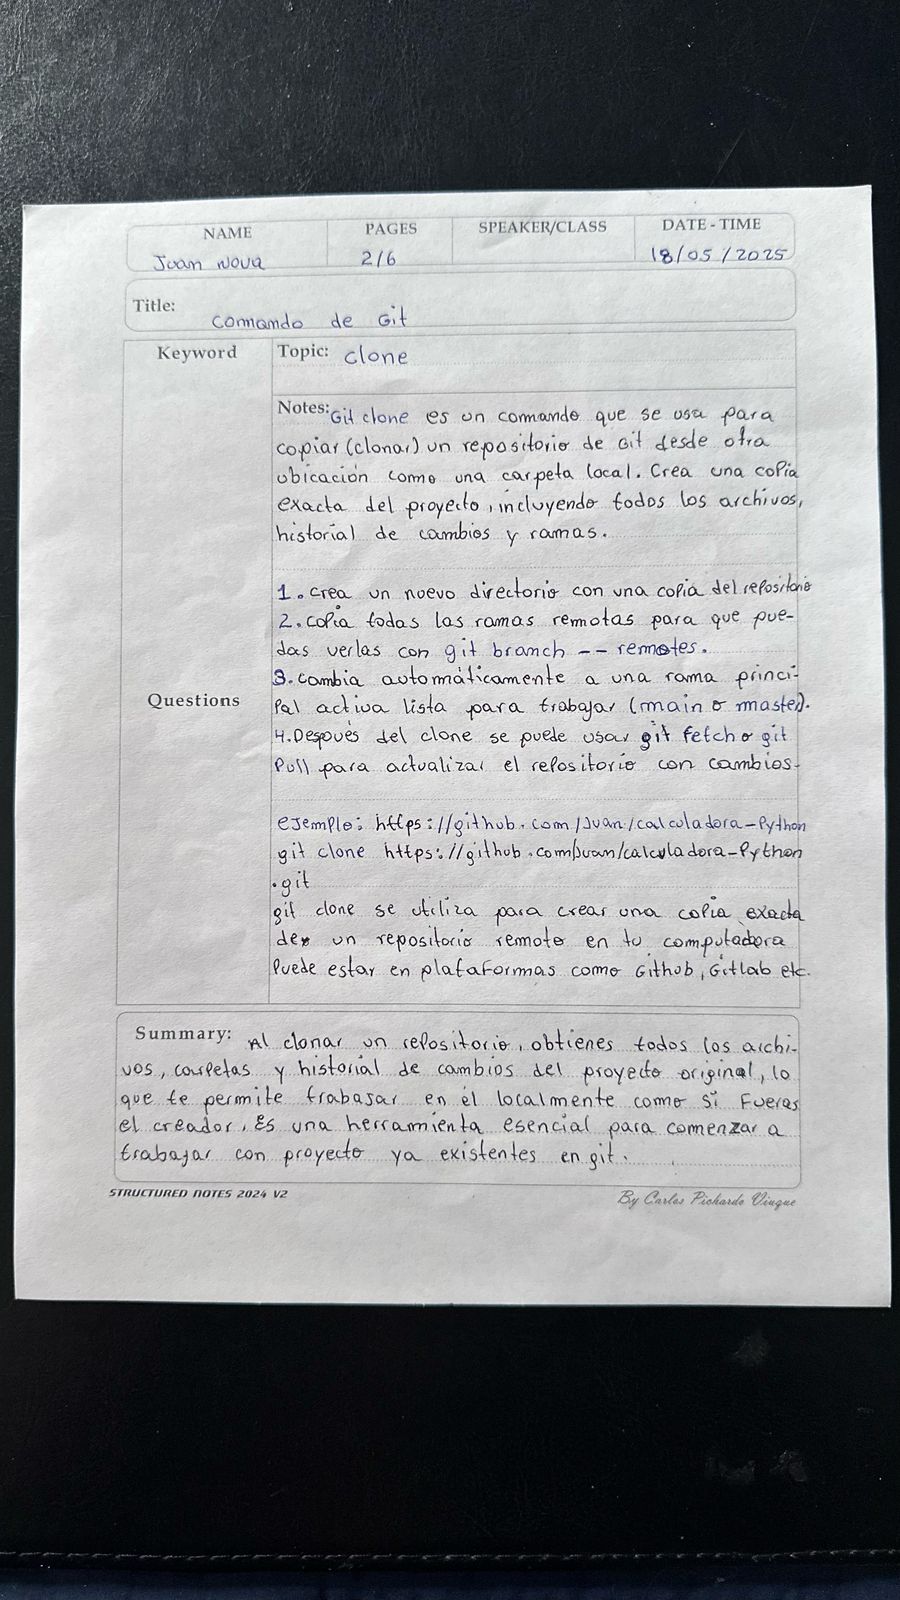 NAME PAGES SPEAKER/CLASS DATE - TIME
Juan Nova 2/6 18/05/2025
Title: Comando de Git
Keyword Topic: Clone
Notes: Git clone es un comando que se usa para
copiar (clonar) un repositorio de Git desde otra
ubicación como una carpeta local. Crea una copia
exacta del proyecto, incluyendo todos los archivos,
historial de cambios y ramas.
1. Crea un nuevo directorio con una copia del repositorio
2. Copia todas las ramas remotas para que pue-
das verlas con git branch -- remotes.
3. Cambia automáticamente a una rama princi-
Questions
pal activa lista para trabajar (main o master).
4. Después del clone se puede usar git fetch o git
Pull para actualizar el repositorio con cambios.
Ejemplo: https://github.com/Juan/calculadora-Python
git clone https://github.com/Juan/calculadora-Python
.git
git clone se utiliza para crear una copia exacta
de un repositorio remoto en tu computadora
Puede estar en plataformas como Github, Gitlab etc.
Summary: Al clonar un repositorio, obtienes todos los archi-
vos, carpetas y historial de cambios del proyecto original, lo
que te permite trabajar en él localmente como si fueras
el creador. Es una herramienta esencial para comenzar a
trabajar con proyecto ya existentes en git.
STRUCTURED NOTES 2024 V2 By Carlos Pichardo Viuque